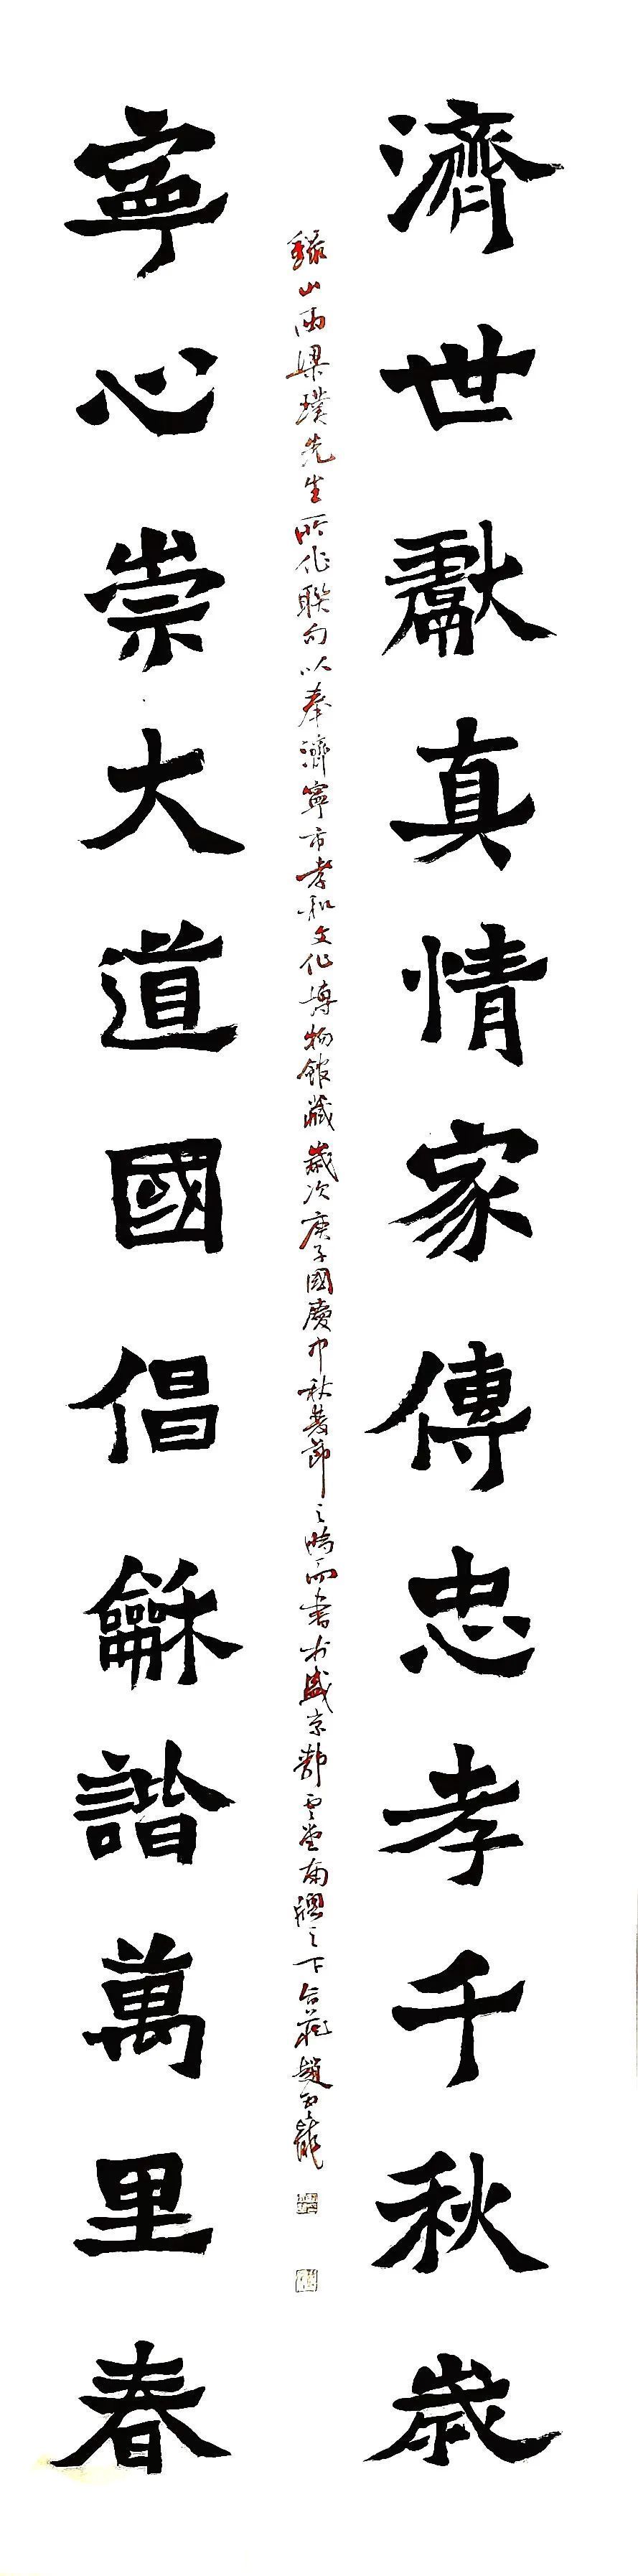 濟世獻真情家傳忠孝千秋歲
寧心崇大道國倡龢諧萬里春
山兩梁璞先生所作聯句以奉濟寧市孝和文化博物館藏歲次庚子國慶中秋雙節之時而書於盛京鄰雲堂南牖之下趙玉龍